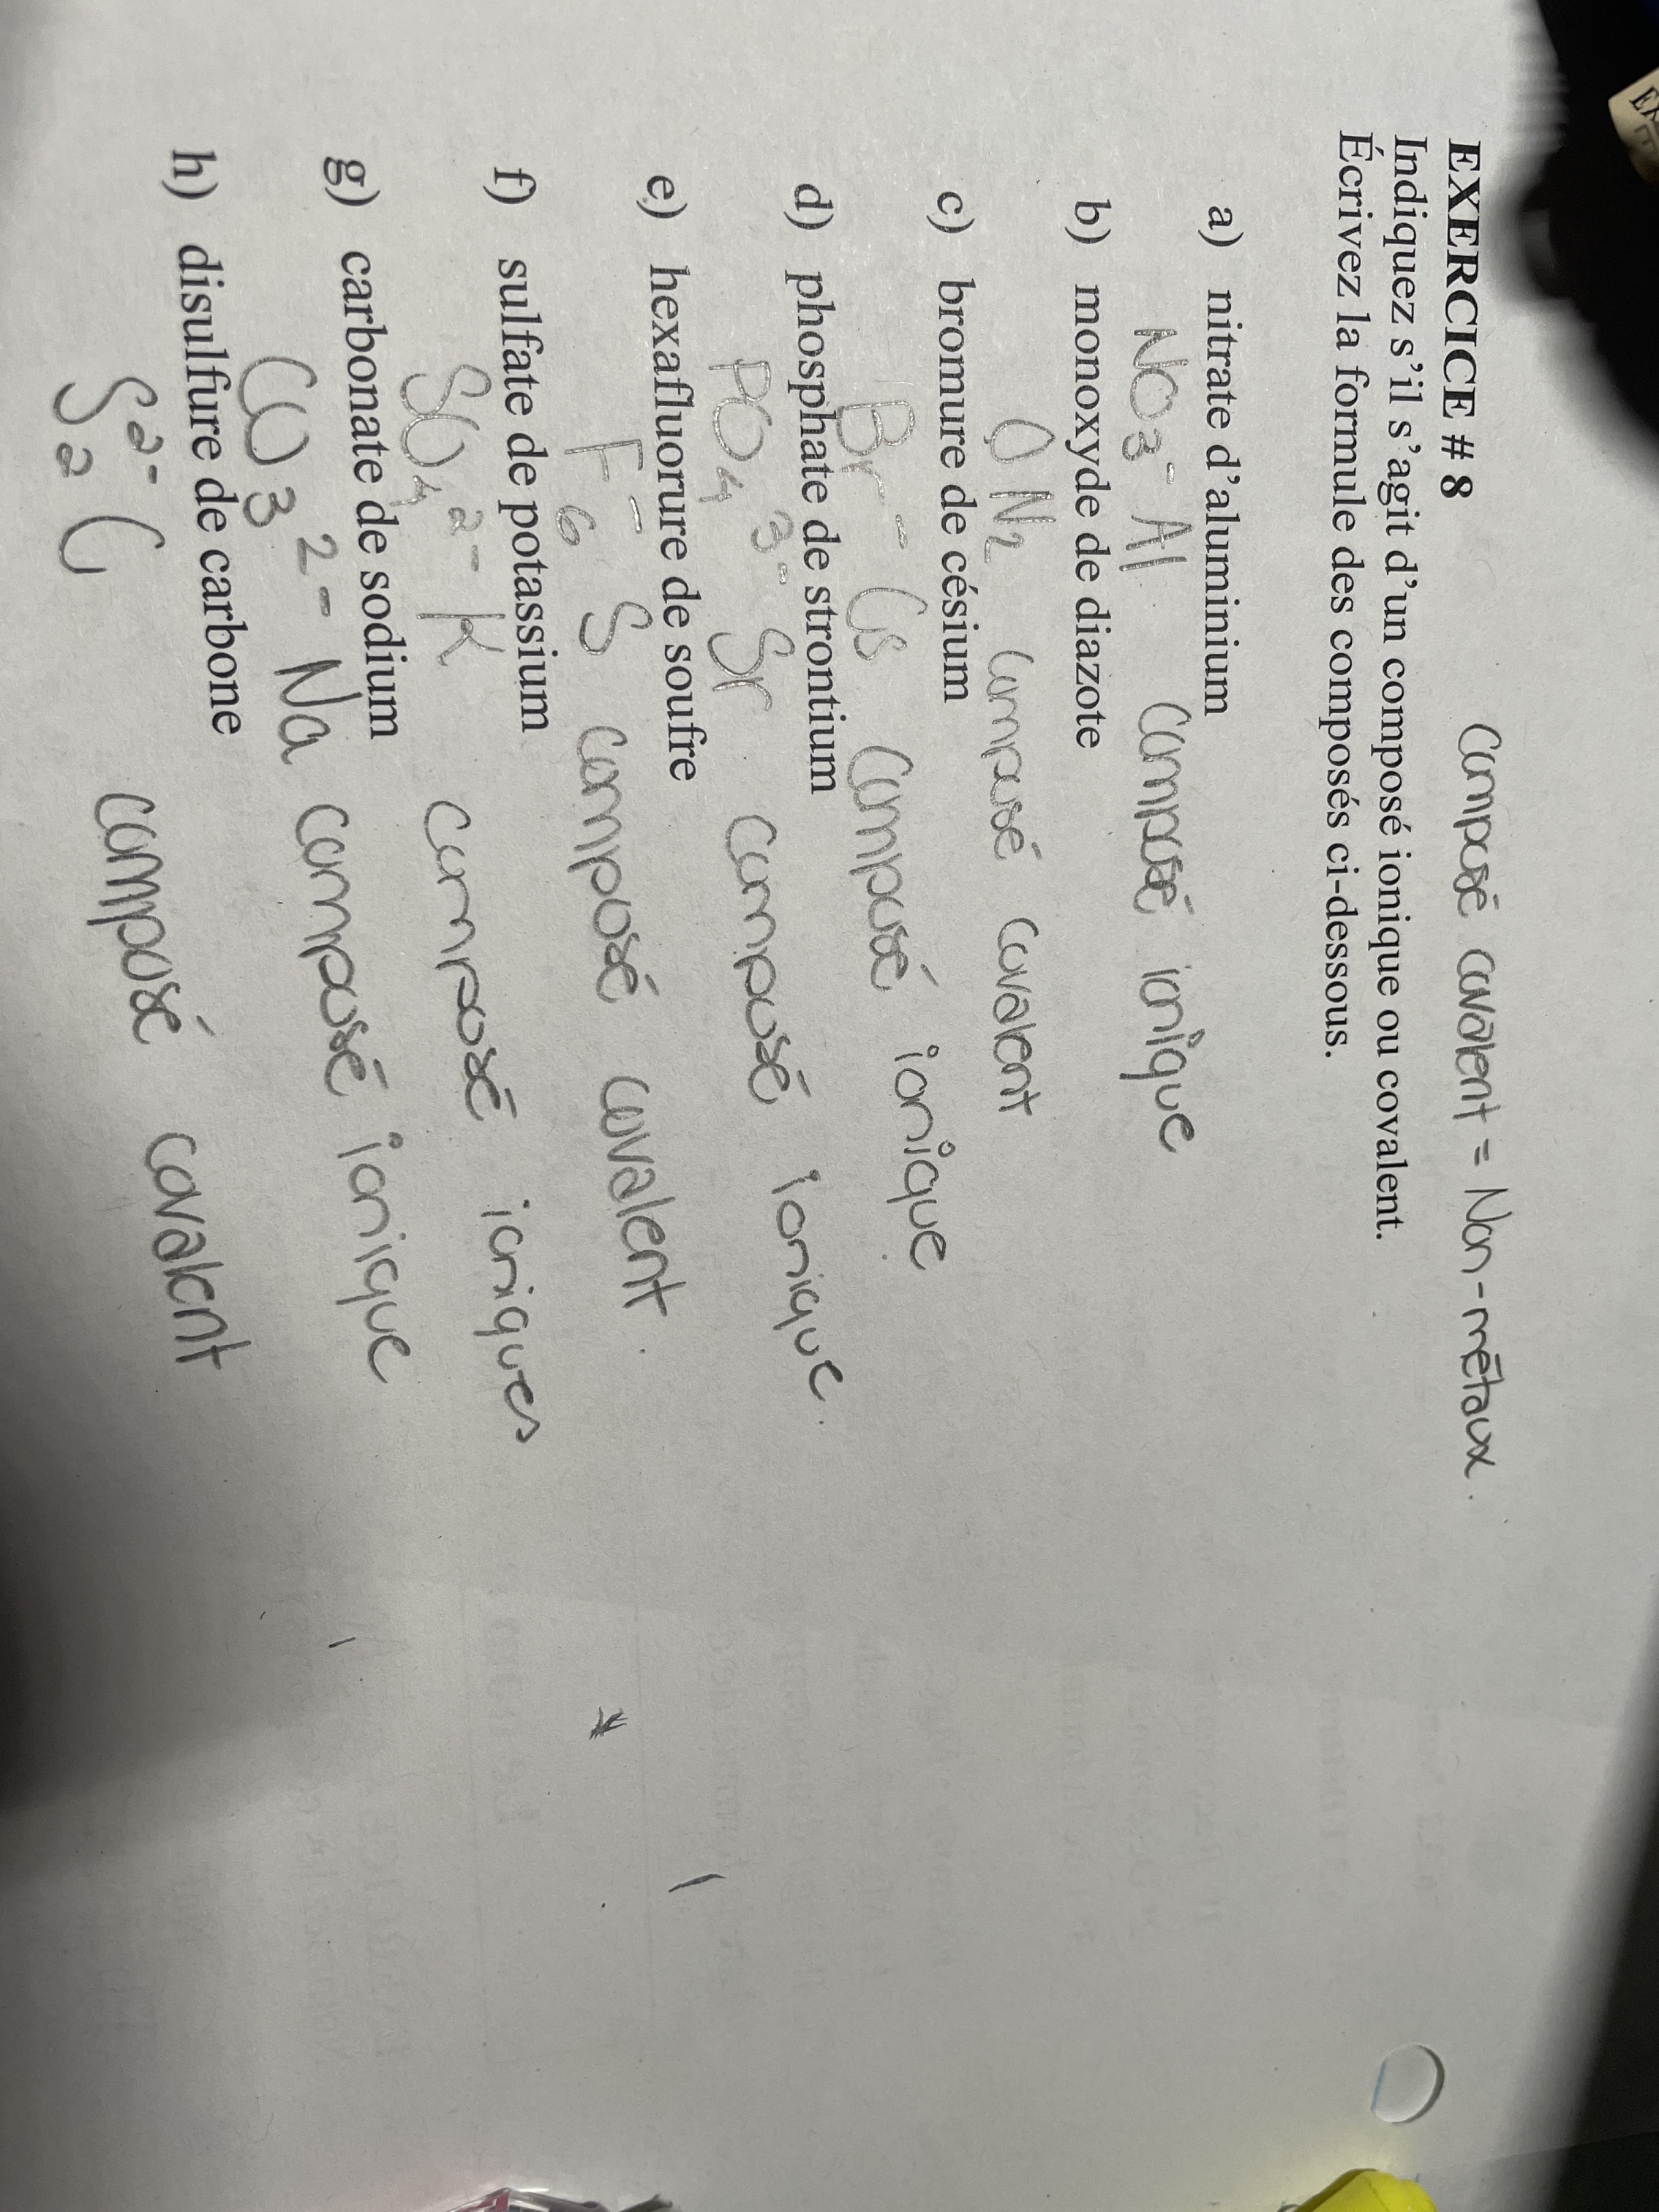 EXERCICE # 8 Composé covalent = Non-métaux.
Indiquez s'il s'agit d'un composé ionique ou covalent.
Écrivez la formule des composés ci-dessous.
a) nitrate d'aluminium
NO3- Al Composé ionique
b) monoxyde de diazote
O N2 composé covalent
c) bromure de césium
Br- Cs composé ionique
d) phosphate de strontium
PO4 3- Sr composé ionique.
e) hexafluorure de soufre
F-6 S composé covalent.
f) sulfate de potassium
SO4 2- K composé ioniques
g) carbonate de sodium
CO3 2- Na composé ionique
h) disulfure de carbone
S2-2 C composé covalent